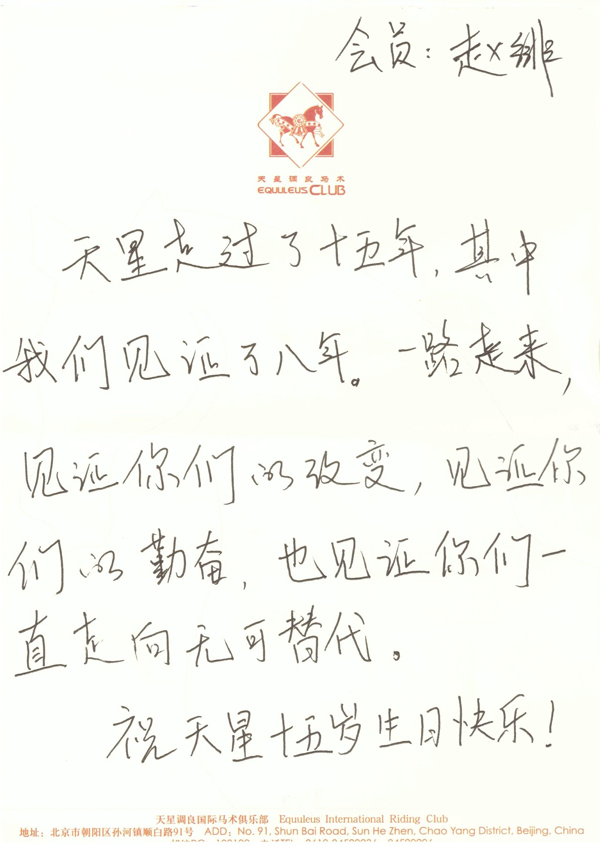 会员：赵绯
天星调良马术
EQUULEUS CLUB
天星走过了十五年，其中
我们见证了八年。一路走来，
见证你们的改变，见证你
们的勤奋，也见证你们一
直走向无可替代。
祝天星十五岁生日快乐！
天星调良国际马术俱乐部 Equuleus International Riding Club
地址：北京市朝阳区孙河镇顺白路91号 ADD：No. 91, Shun Bai Road, Sun He Zhen, Chao Yang District, Beijing, China